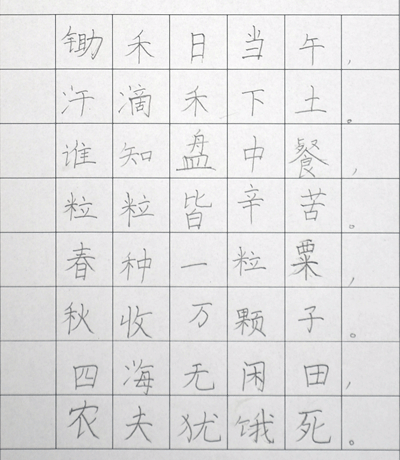 锄禾日当午,
汗滴禾下土。
谁知盘中餐,
粒粒皆辛苦。
春种一粒粟,
秋收万颗子。
四海无闲田,
农夫犹饿死。